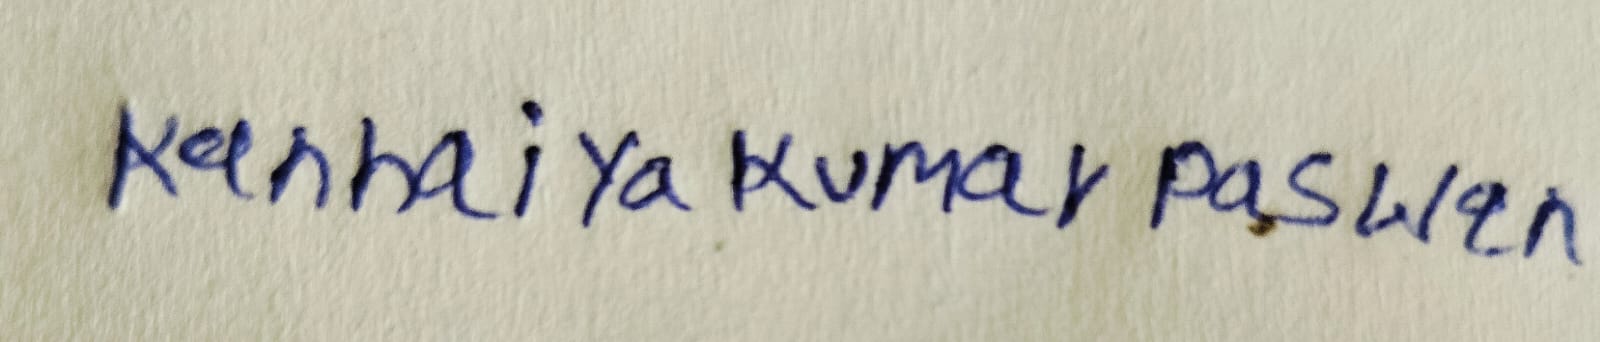 Kanhaiya Kumar Paswan